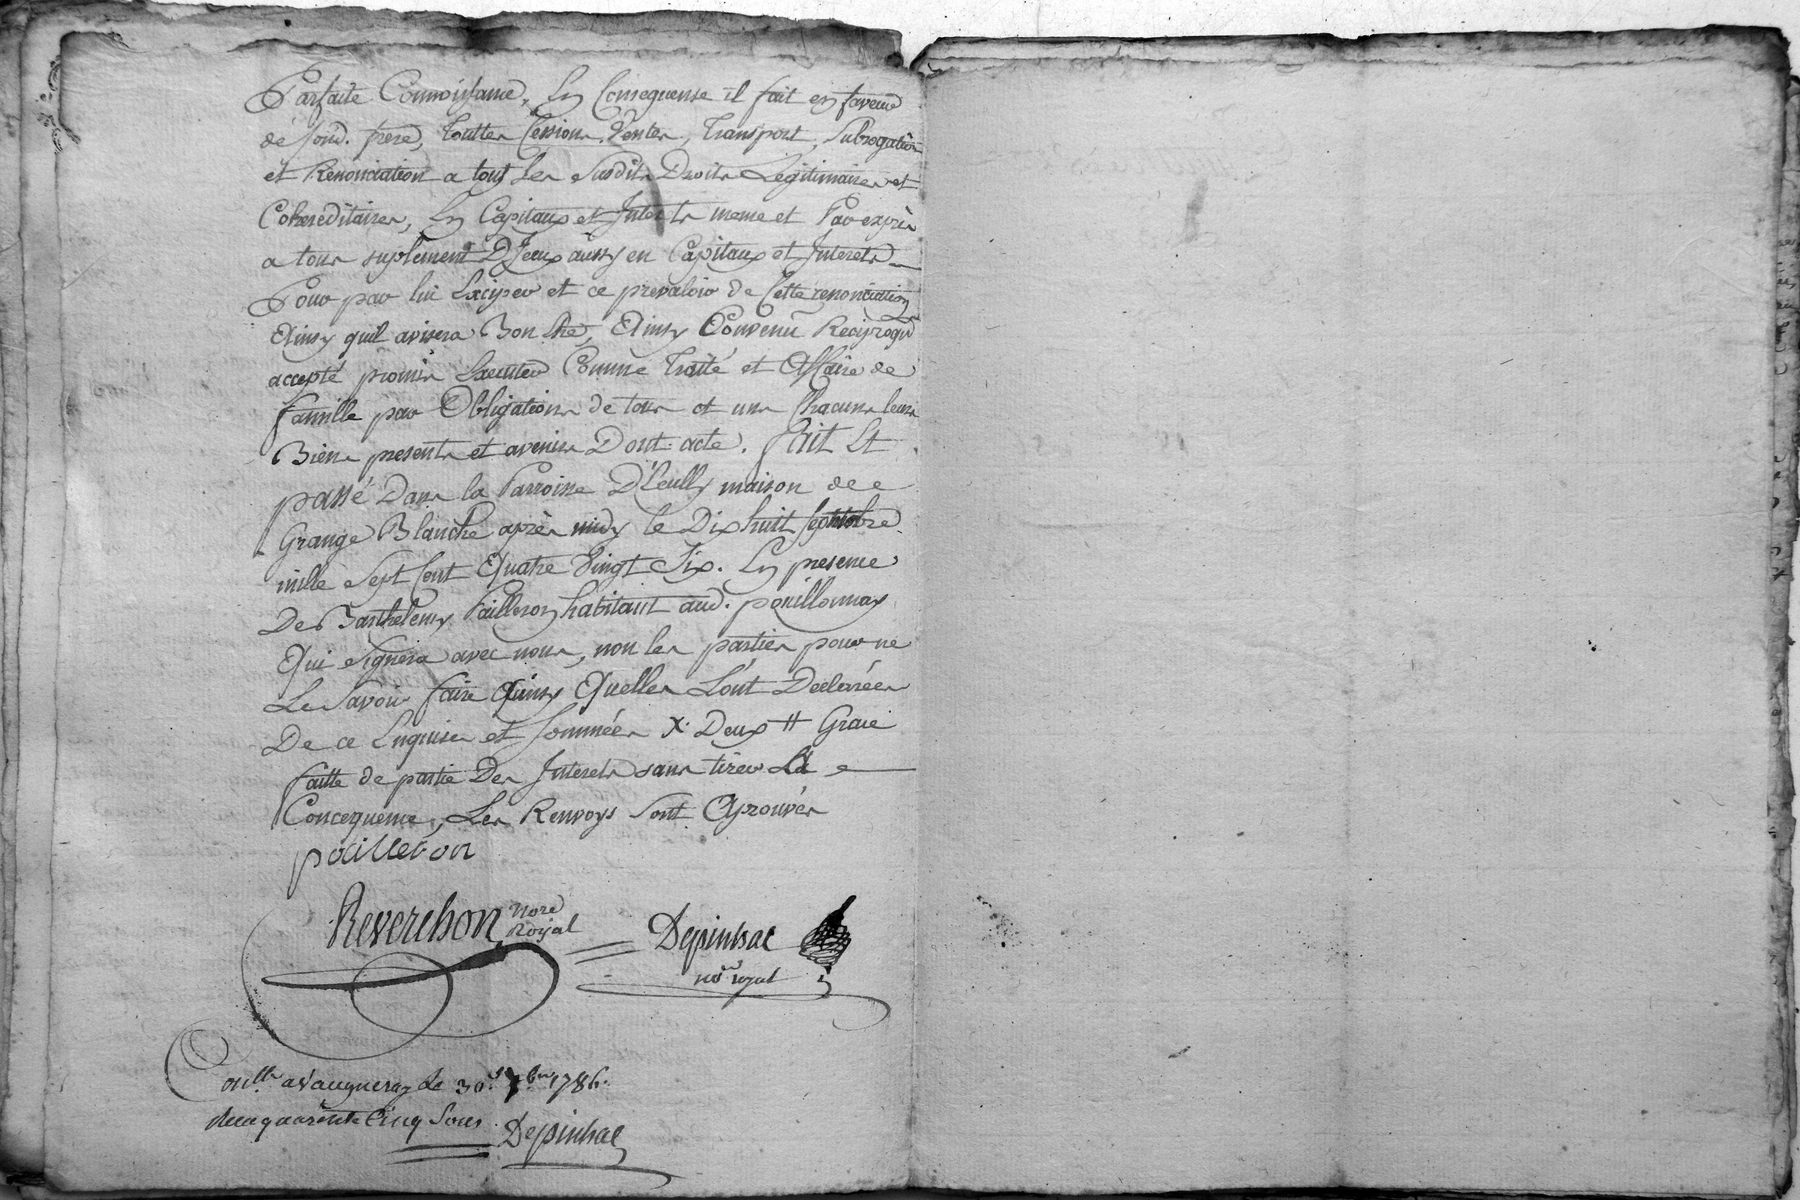 Parfaite Connoissance, En Consequense il fait en faveur
de sond. frere, touttes Cessions, Ventes, Transport, Subrogation
et Renonciation a tous Les Susdits Droits Legitimaires et
Cohereditaires, En Capitaux et Interets meme et Par exprès
a tous suplement D'Iceux aussy en Capitaux et Interets
Pour par lui Exciper et ce prevaloir de Cette renonciation
Ainsy quil avisera Bon Etre, Ainsy Convenu Reciproqt
accepté promis Executer Comme Traité et Affaire de
famille par Obligations de tous et uns Chacuns leurs
Biens presents et avenirs Dont acte. Fait Et
passé Dans la Parroisse D'Ecully maison de
Grange Blanche après midy le Dix huit septembre
mille Sept Cent Quatre Vingt Six. En presence
De Barthelemy Pailleron habitant aud. pouillonnay
Qui Signera avec nous, non les parties pour ne
Le Savoir faire Ainsy Quelles L'ont Declarées
De ce Enquises et Sommées X. Deux # Grace
faitte de partie Des Interets sans tirer Ed
Concequence, Les Renvoys Sont Aprouvés
pailleron
Reverchon Nore Royal
Depinhac
nore royal
Conllé a Vaugneray Le 30. 7bre 1786.
Recu quarente Cinq Sous
Depinhac